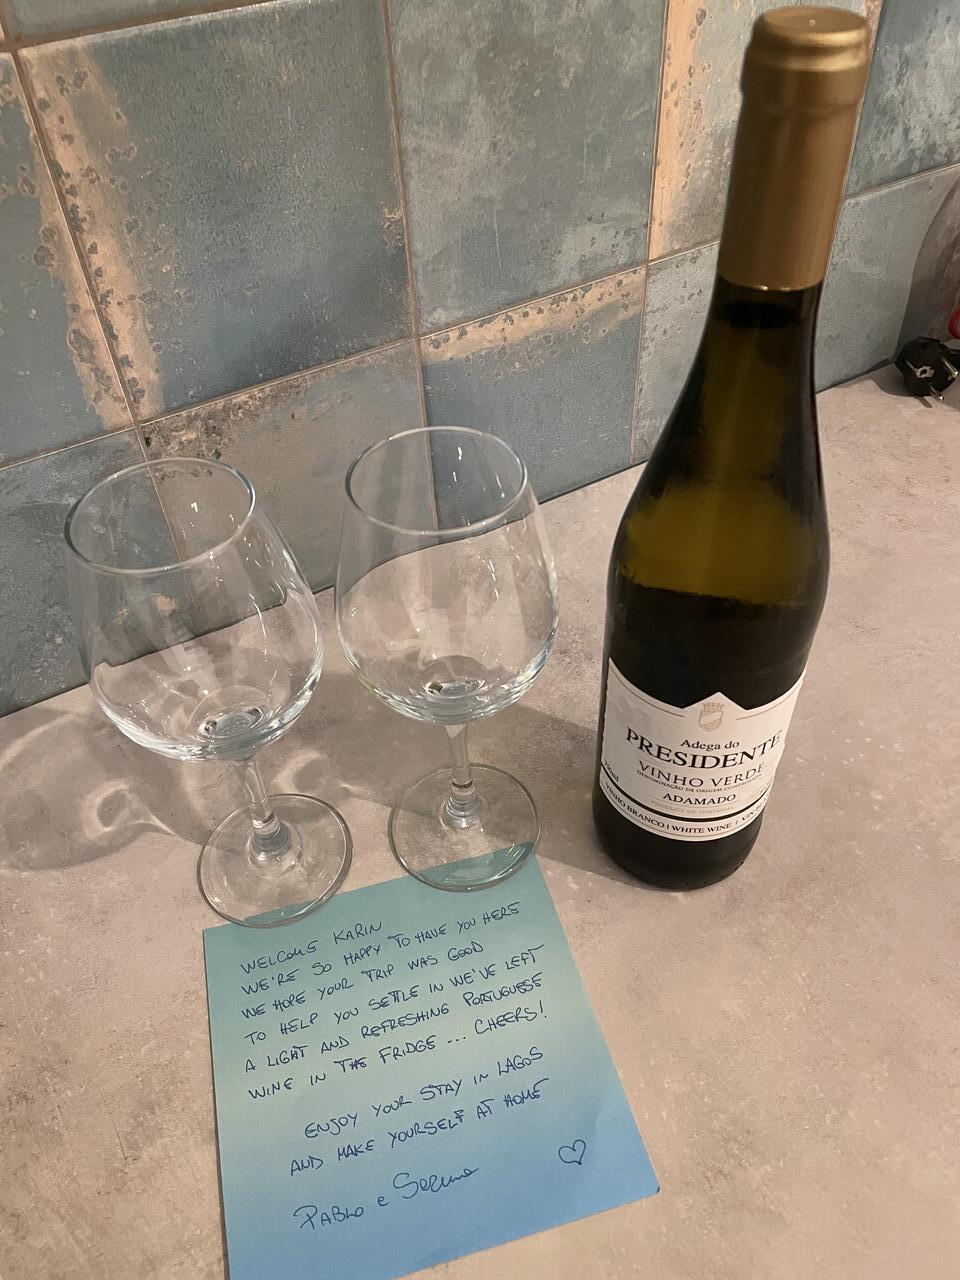 Adega do
PRESIDENTE
VINHO VERDE
DENOMINAÇÃO DE ORIGEM CONTROLADA
ADAMADO
PRODUCT OF PORTUGAL
VINHO BRANCO | WHITE WINE |
WELCOME KARIN
WE'RE SO HAPPY TO HAVE YOU HERE
WE HOPE YOUR TRIP WAS GOOD
TO HELP YOU SETTLE IN WE'VE LEFT
A LIGHT AND REFRESHING PORTUGUESE
WINE IN THE FRIDGE ... CHEERS!
ENJOY YOUR STAY IN LAGOS
AND MAKE YOURSELF AT HOME
PABLO e